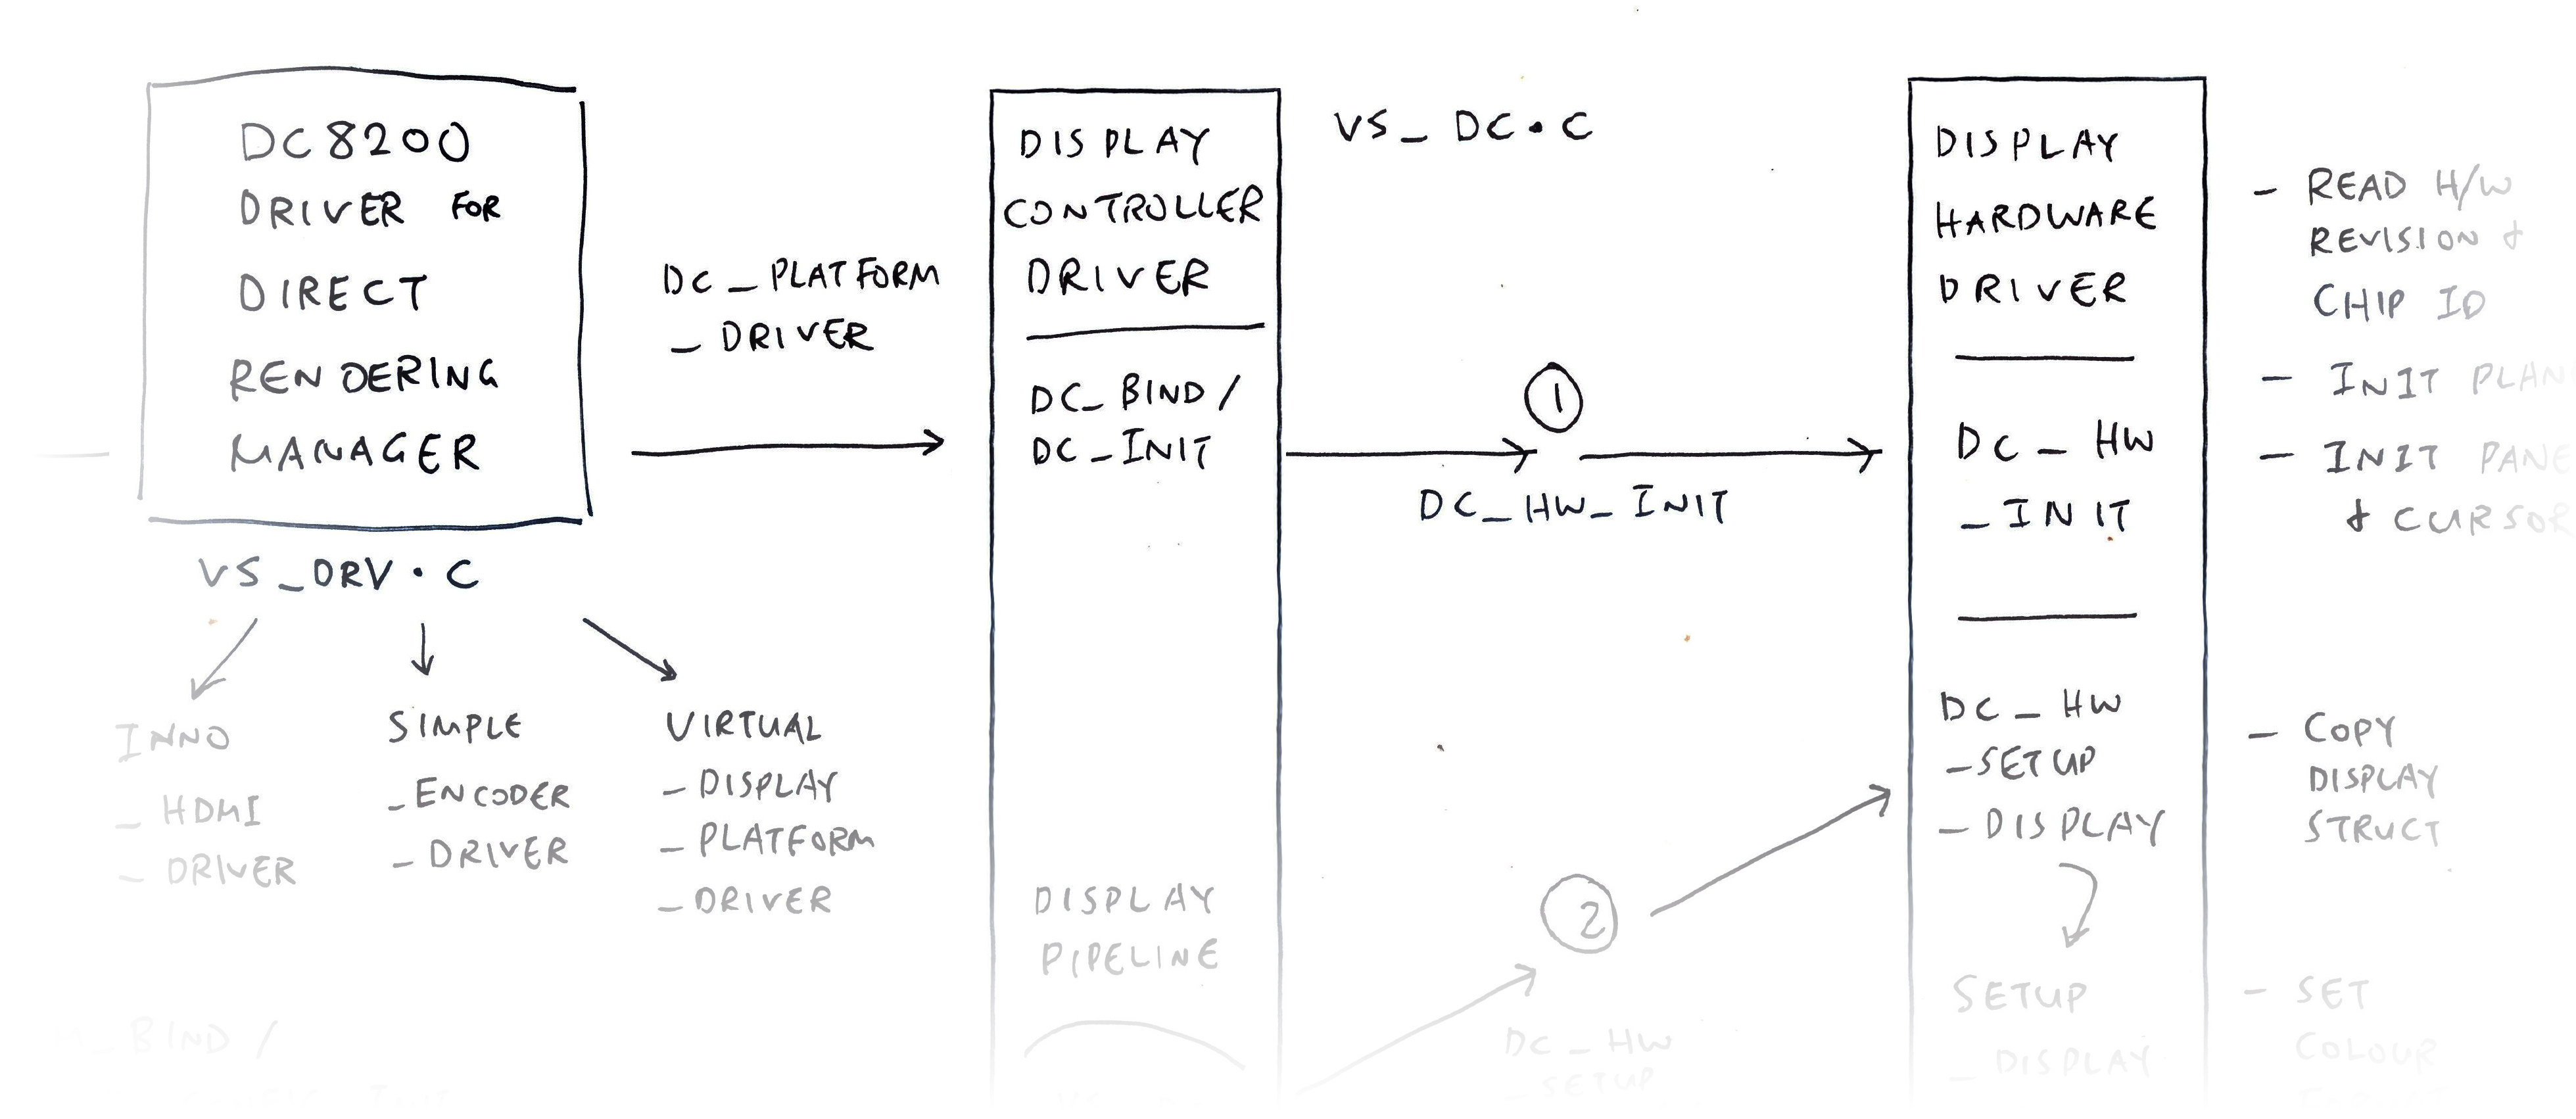 DC8200
DRIVER FOR
DIRECT
RENDERING
MANAGER
VS_DRV.C
INNO
_HDMI
_DRIVER
SIMPLE
_ENCODER
_DRIVER
VIRTUAL
_DISPLAY
_PLATFORM
_DRIVER
_BIND /
DC_PLATFORM
_DRIVER
DISPLAY
CONTROLLER
DRIVER
DC_BIND /
DC_INIT
DISPLAY
PIPELINE
VS_DC.C
1
DC_HW_INIT
2
DC_HW
_SETUP
DISPLAY
HARDWARE
DRIVER
DC_HW
_INIT
DC_HW
_SETUP
_DISPLAY
SETUP
_DISPLAY
- READ H/W
REVISION &
CHIP ID
- INIT PLAN
- INIT PANE
& CURSOR
- COPY
DISPLAY
STRUCT
- SET
COLOUR